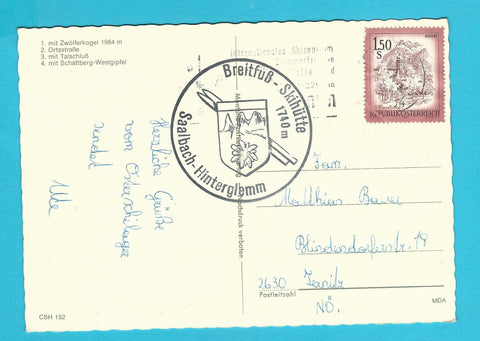 1. mit Zwölferkogel 1984 m
2. Ortsstraße
3. mit Talschluß
4. mit Schattberg-Westgipfel
Herzliche Grüße
vom Osterschilager
sendet
Ulde
CSH 152
Internationales Skizentrum
Sommerfrische
Breitfuß-Skihütte
1740 m
Saalbach-Hinterglemm
verboten
1.50
S
REPUBLIK ÖSTERREICH
Fam.
Matthias Bauer
Blindendorferstr. 19
2630
Postleitzahl
NÖ.
MDA